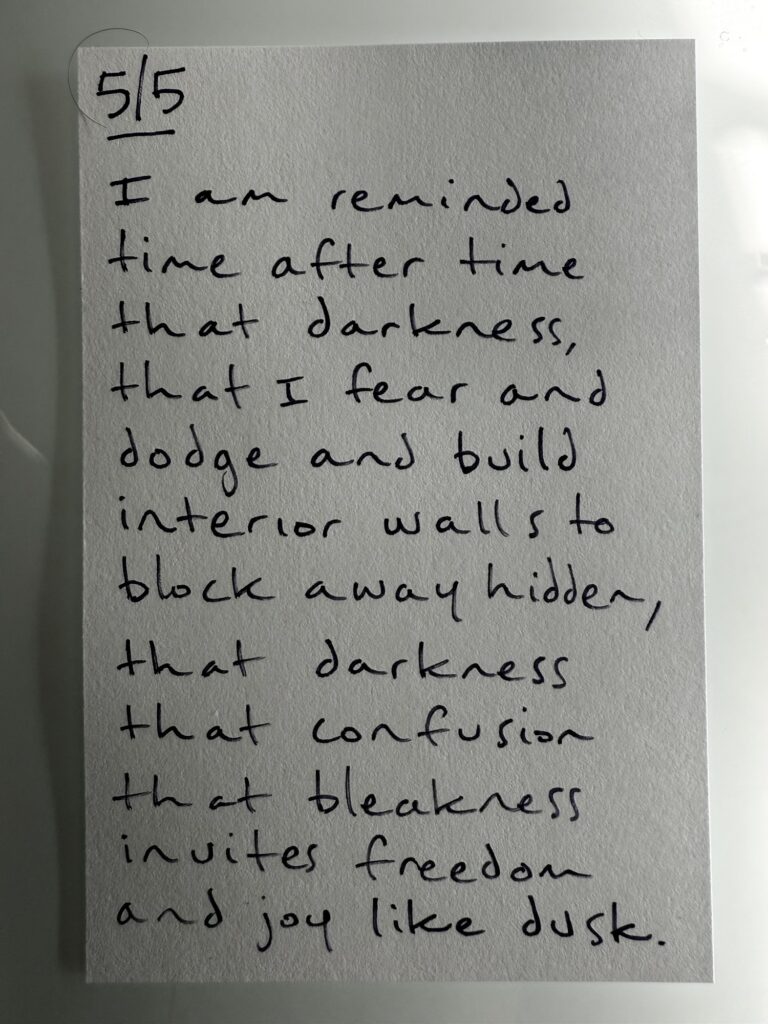 5/5
I am reminded
time after time
that darkness,
that I fear and
dodge and build
interior walls to
block away hidden,
that darkness
that confusion
that bleakness
invites freedom
and joy like dusk.